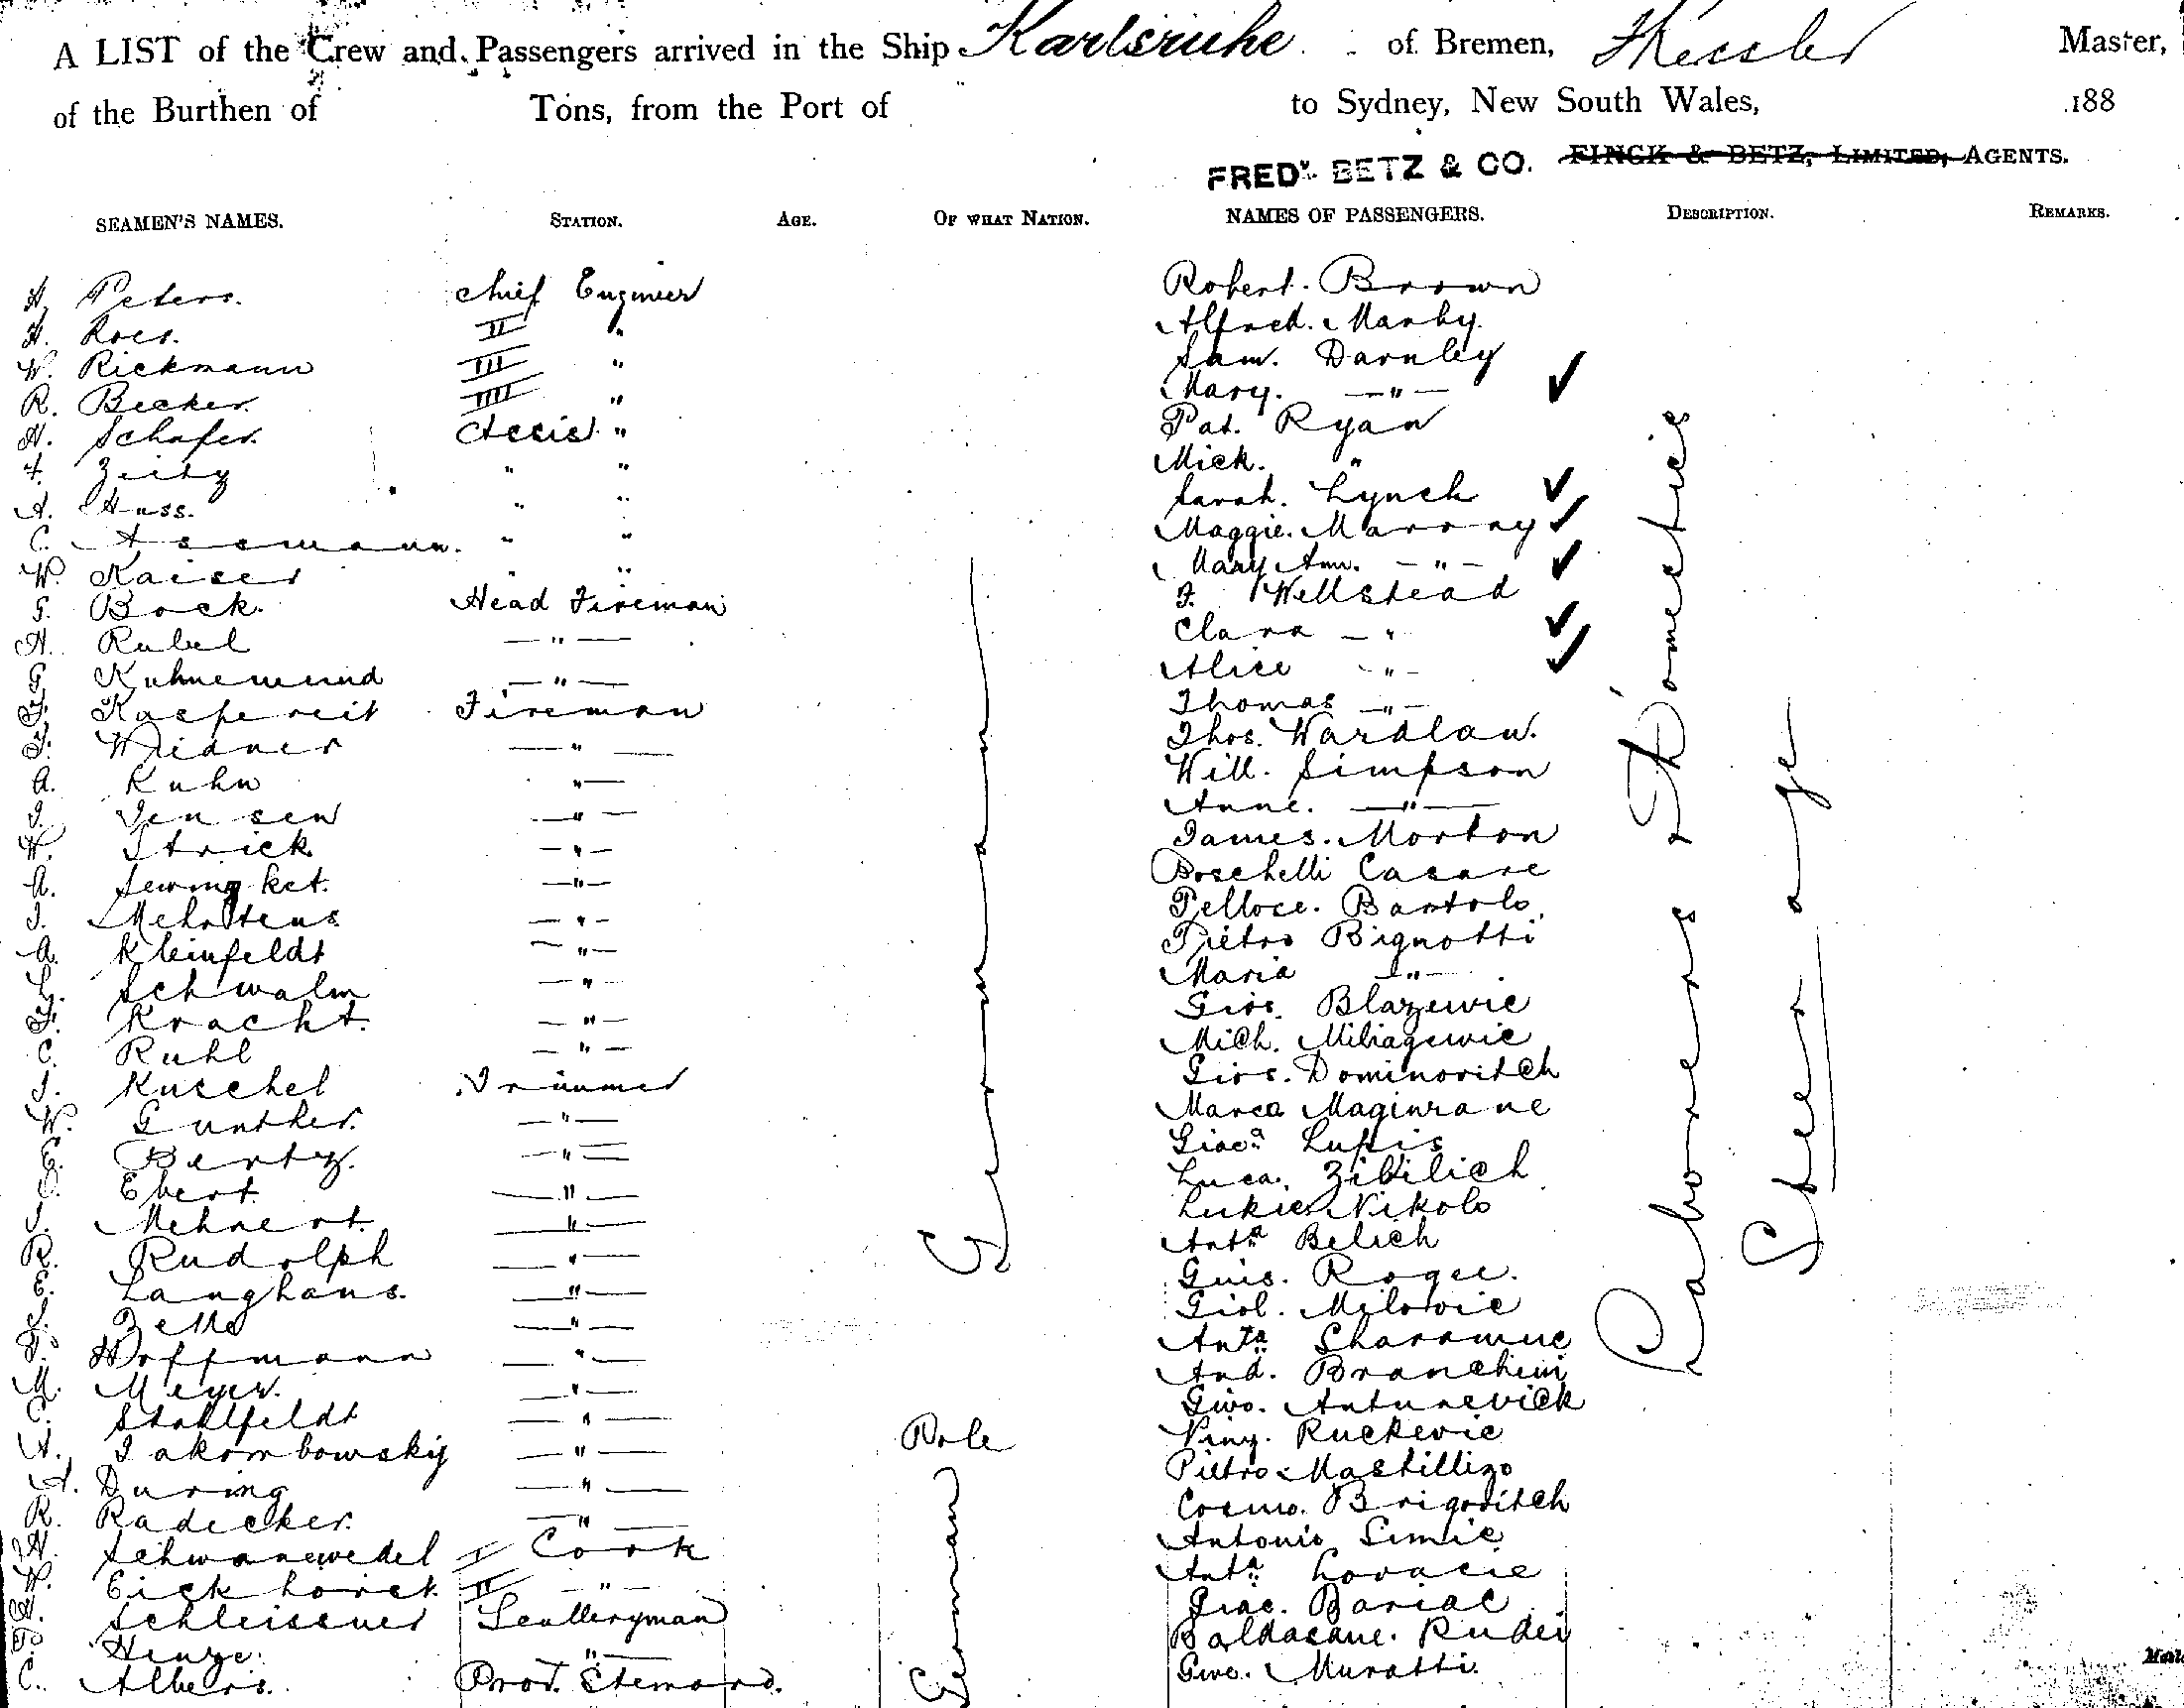 A LIST of the Crew and Passengers arrived in the Ship Karlsruhe of Bremen, Kessler Master,
of the Burthen of Tons, from the Port of to Sydney, New South Wales, 188
FREDK BETZ & CO. FINCK & BETZ, LIMITED, AGENTS.
SEAMEN'S NAMES. STATION. AGE. OF WHAT NATION. NAMES OF PASSENGERS. DESCRIPTION. REMARKS.
H. Peters. Chief Engineer
H. Roes. II "
W. Rickmann III "
R. Becker. IIII "
H. Schafer. Assist "
Zeitz " "
A. Huss. " "
C. Assmann. " "
W. Kaiser " "
G. Bock. Head Fireman
H. Rubel — " —
G. Kuhnemund — " —
F. Kaspereit Fireman
F. Weidner — " —
A. Kuhn " —
J. Jensen — " —
H. Strick — " —
A. Sewing ket. — " —
J. Mehrtens — " —
A. Kleinfeldt — " —
L. Schwalm — " —
F. Kracht. — " —
C. Ruhl — " —
J. Kuschel Trimmer
W. Gunther. — " —
E. Bertz. — " —
Ebert. — " —
J. Mehnert. — " —
R. Rudolph — " —
E. Langhans. — " —
Zello — " —
Hoffmann — " —
M. Meyer. — " —
C. Stahlfeldt — " —
A. Jakombowsky — " — Pole
A. During — " —
R. Radecker. — " —
H. Schwanewedel I Cook
H. Eickhorst II — " —
H. Schleissner Sculleryman
Henze. — " —
C. Albers. Prov. Steward.
German
German
Robert. Brown
Alfred. Manby.
Sam. Darnley
Mary. — " — ✓
Pat. Ryan
Mick. "
Sarah. Lynch ✓
Maggie. Marray ✓
Mary Ann. — " — ✓
F. Wellstead
Clara — " ✓
Alice — " — ✓
Thomas — " —
Thos. Wardlaw.
Will. Simpson
Anne. — " —
James. Morton
Boschelli Casare
Pelloce. Bartolo.
Pietro Bignotti
Maria — " —
Gios. Blazewic
Mich. Miliagewic
Gios. Dominovitch
Marca Maginrane
Giaca Lupis
Luca. Zibilich
Lukie Nikolo
Anta Belich
Guis. Rogee.
Giob. Milovic
Anta Sharamue
And. Branchini
Givo. Antunevich
Ving. Ruckevic
Pietro Mastillizo
Cosmo. Brigovitch
Antonio Simic
Anta Lovacie
Giac. Bariac
Baldasane. Rudei
Give. Muratti.
Laborers & Domestics
Steerage